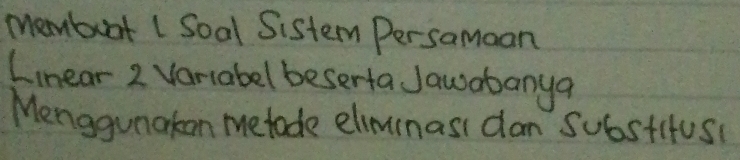 Membuat 1 Soal Sistem Persamaan
Linear 2 Variabel beserta Jawabanya
Menggunakan metode eliminasi dan Substitusi